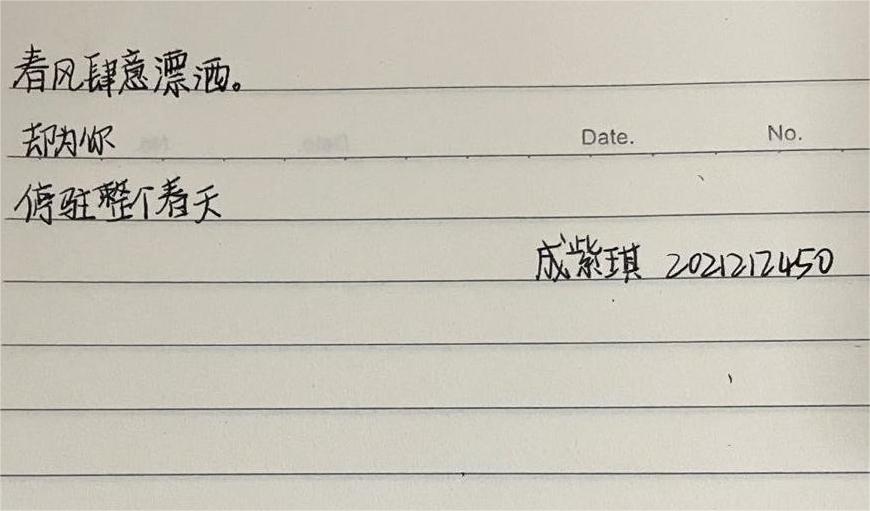 春风肆意漂洒。
却为你
Date. No.
停驻整个春天
成紫琪 2021212450